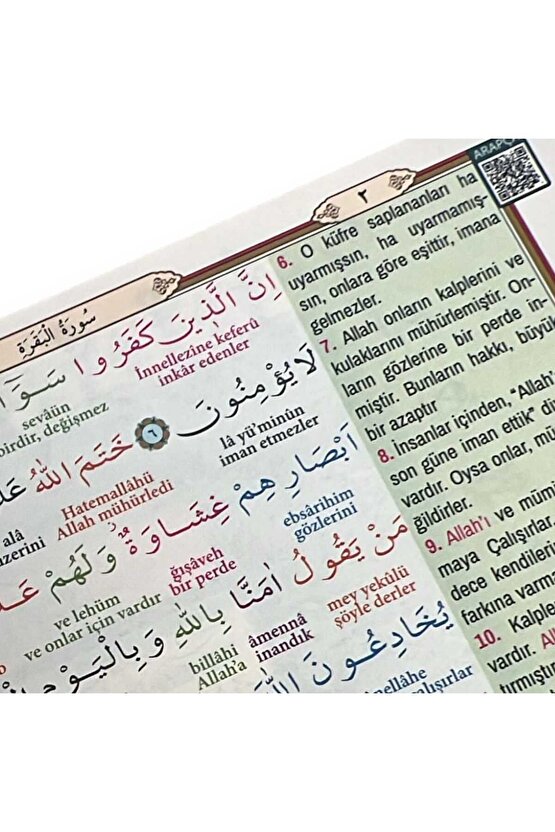 سُورَةُ الْبَقَرَةِ
٢
ARAPÇ
اِنَّ الَّذ۪ينَ كَفَرُوا سَوَٓا
İnnellezine keferû
inkâr edenler
sevâün
birdir, değişmez
لَا يُؤْمِنُونَ ٦ خَتَمَ اللّٰهُ عَلٰ
lâ yü'minûn
iman etmezler
Hatemallâhü
Allah mühürledi
alâ
üzerini
اَبْصَارِهِمْ غِشَاوَةٌ وَلَهُمْ عَذَ
ebsârihim
gözlerini
ğışâveh
bir perde
ve lehüm
ve onlar için vardır
مَنْ يَقُولُ اٰمَنَّا بِاللّٰهِ وَبِالْيَوْمِ
mey yekülü
şöyle derler
âmennâ
inandık
billâhi
Allah'a
يُخَادِعُونَ اللّٰ
nellahe
alışırlar
6. O küfre saplananları ha
uyarmışsın, ha uyarmamış-
sın, onlara göre eşittir, imana
gelmezler.
7. Allah onların kalplerini ve
kulaklarını mühürlemiştir. On-
ların gözlerine bir perde in-
miştir. Bunların hakkı, büyü
bir azaptır
8. İnsanlar içinden, "Allah'
son güne iman ettik" di
vardır. Oysa onlar, mü
ğildirler.
9. Allah'ı ve müm
maya Çalışırlar
dece kendileri
farkına varm
10. Kalple
vardır. Al
tırmıştı